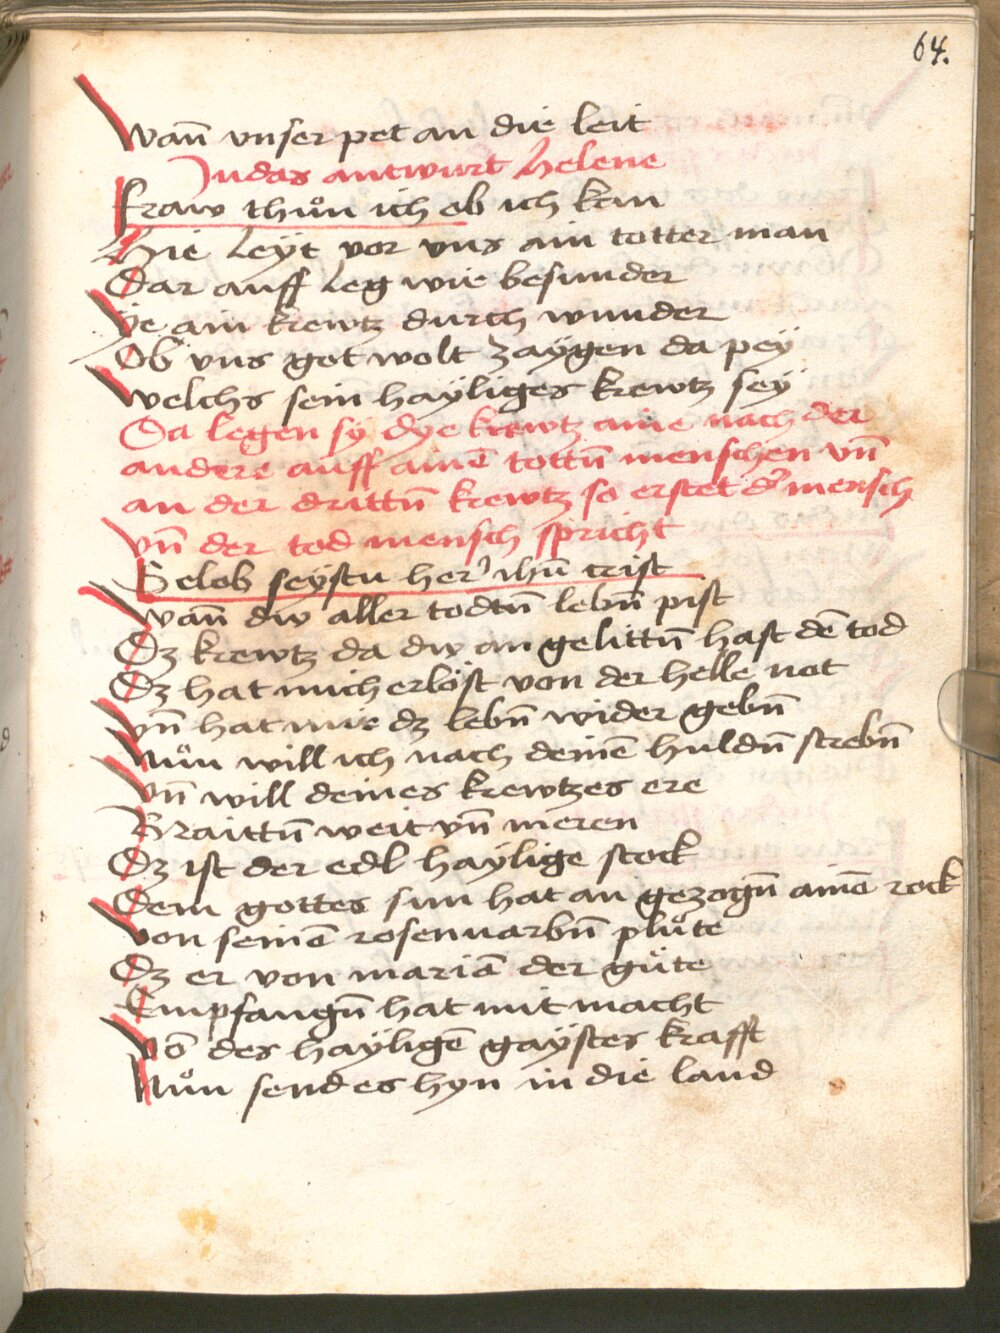 64.
Wan̄ vnser pet an die leit
Judas antwurt helene
Fraw thuͦn ich ob ich kan
Hie leÿt vor vns ain totter man
Dar auff leg wir besunder
Ye ain krewtz durch wunder
Ob vns got wolt zaÿgen da peÿ
Welchs sein haÿliges krewtz seÿ
Da legen sÿ dye krewtz aine nach der
andere auff aine͞ tottn̄ menschen vn̄
an der drittn̄ krewtz so erstet d' mensch
vn̄ der tod mensch spricht
Gelob seÿstu her' ihū crist
Wan̄ dw aller todtn̄ lebn̄ pist
Dz krewtz da dw an gelittn̄ hast dē tod
Dz hat mich erlöst von der helle not
Vn̄ hat mir dz lebn̄ wider gebn̄
Nuͦn will ich nach deinē huldn̄ strebn̄
Vn̄ will deines krewtzes ere
Braittn̄ weit vn̄ meren
Dz ist der edl haÿlige stock
Dem gottes sun hat an gezogn̄ ainē rock
Von seinē rosenuarbn̄ pluͤte
Dz er von mariā der guͤte
Empfangn̄ hat mit macht
Vō des haÿligē gaÿstes krafft
Nuͦn send es hyn in die land